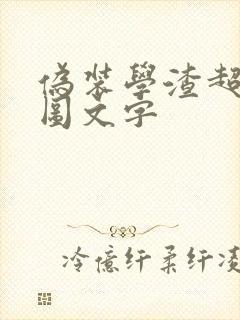 偽裝學渣超
圖文字
冷億纤柔纤凌